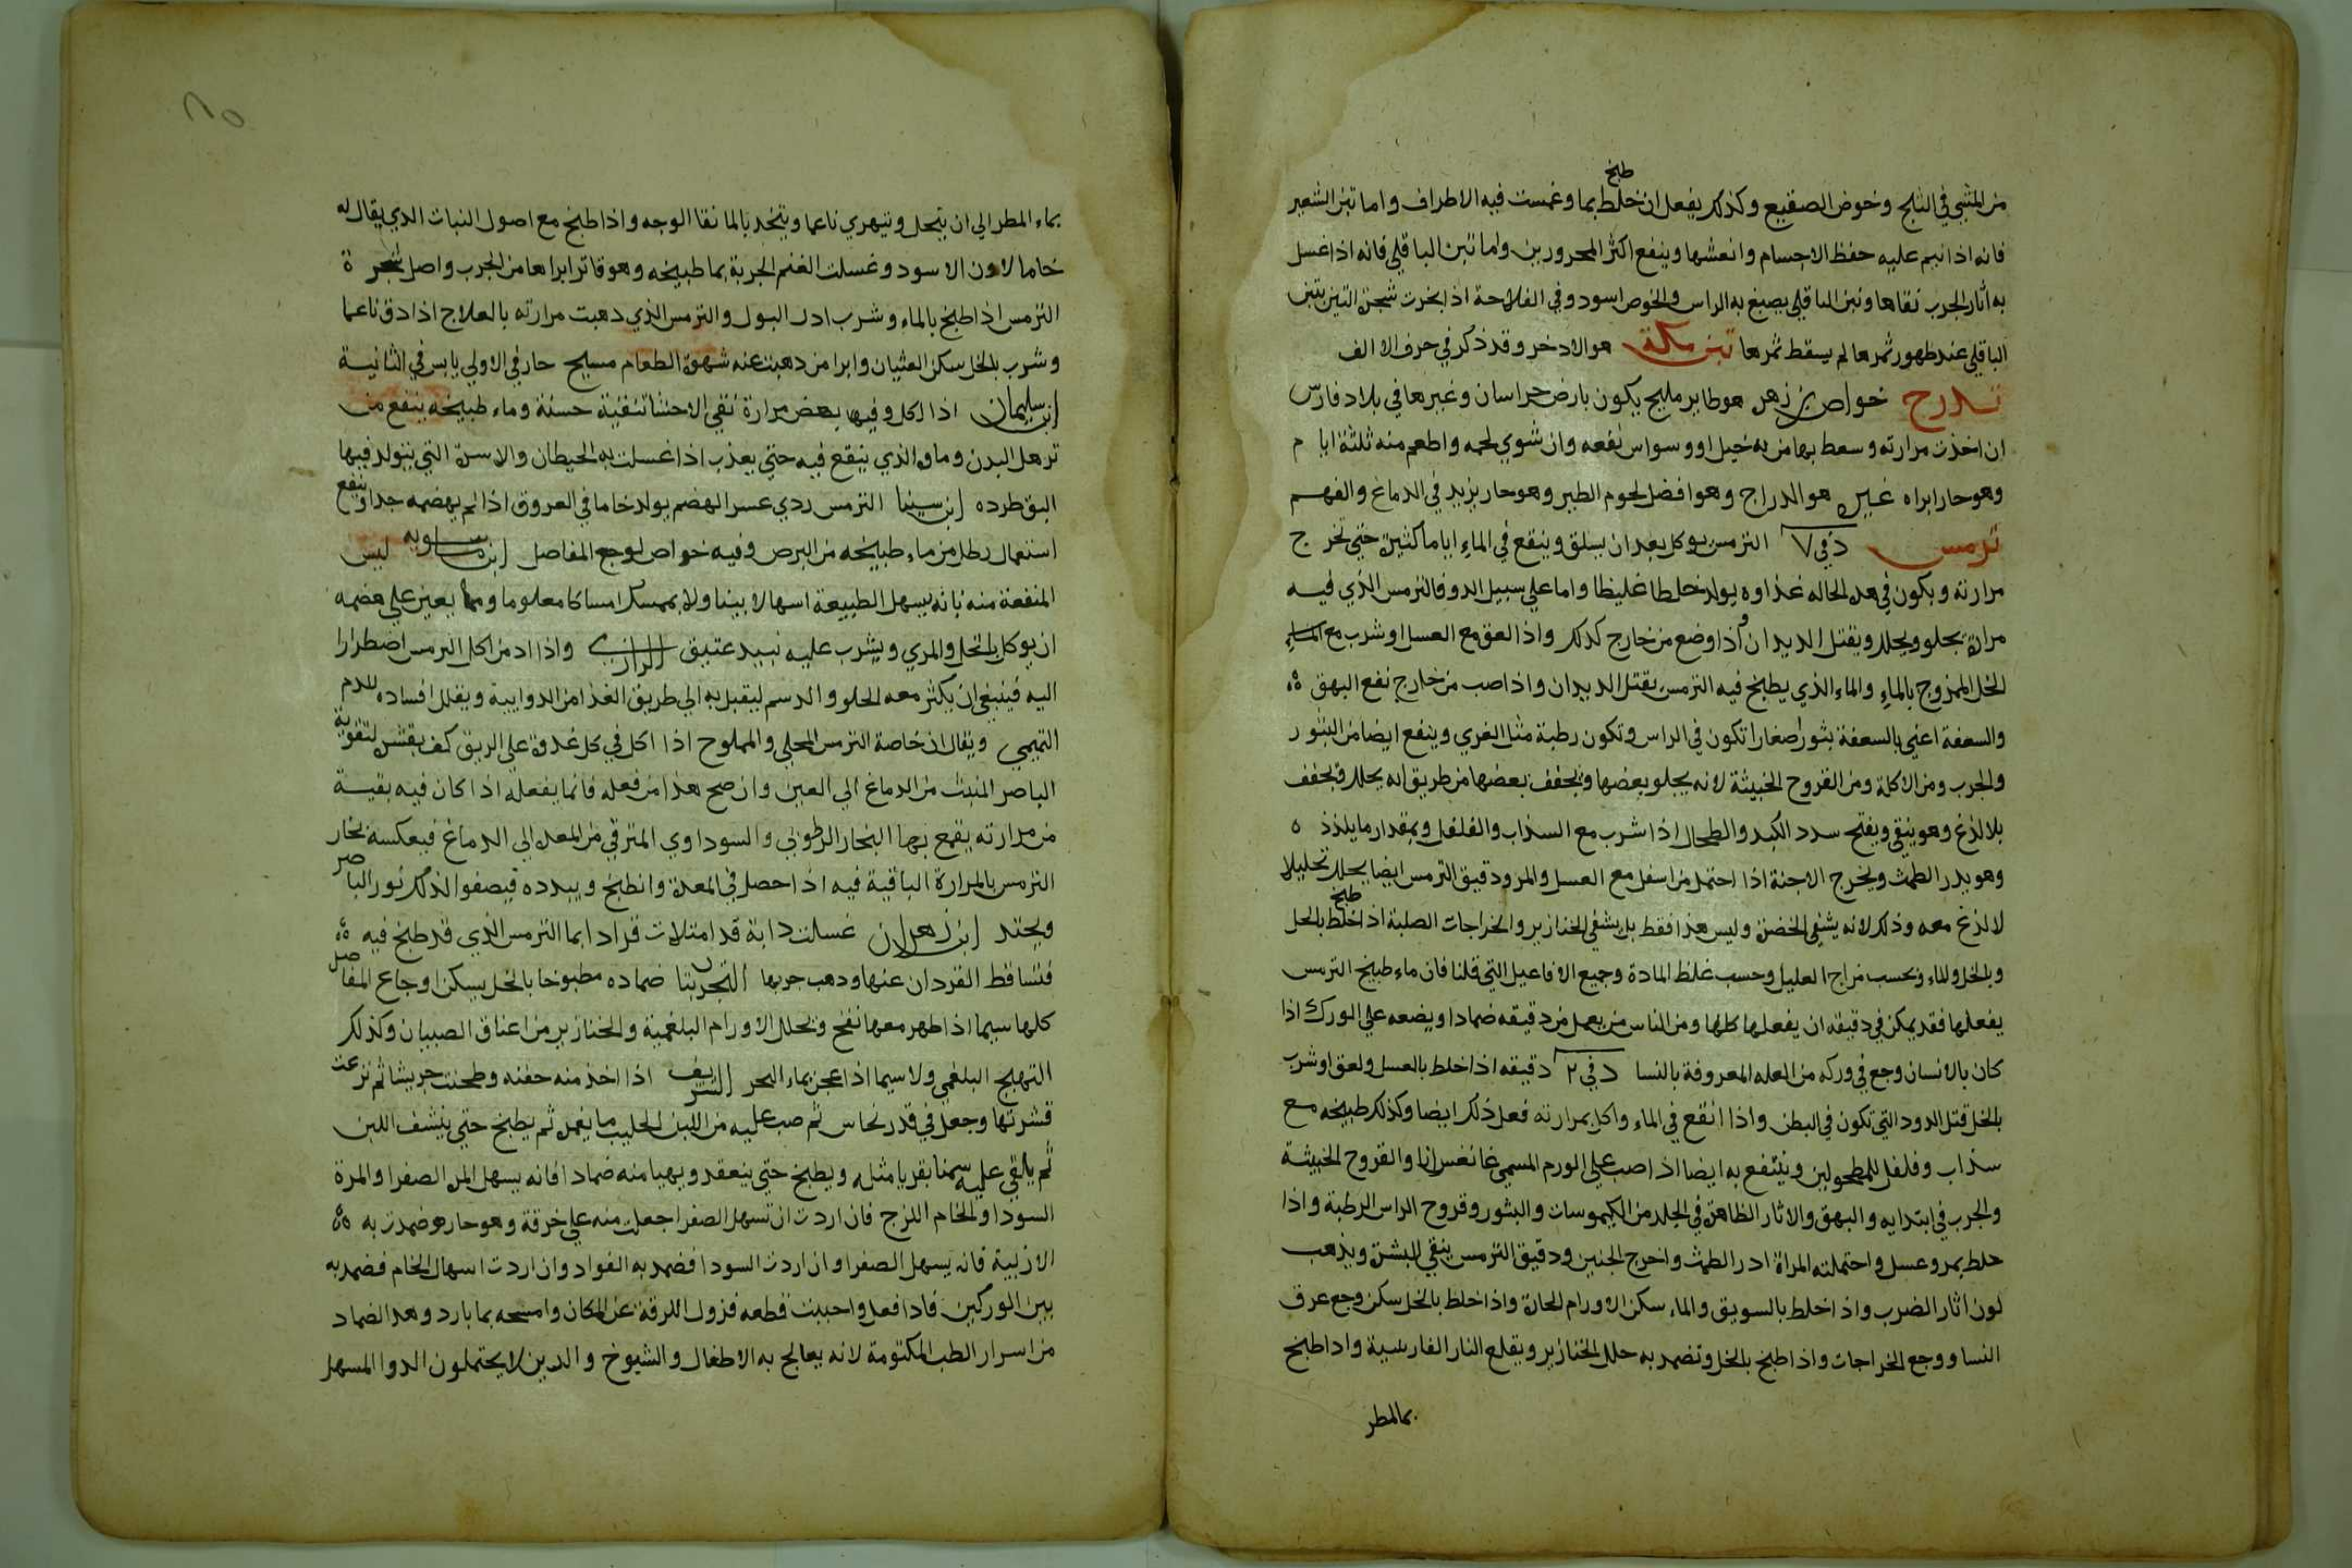 طبخ
من المشي في الثلج وخوض الصقيع وكذلك يفعل ان خلط بما وغمست فيه الاطراف واما تبن الشعير
فانه اذا نيم عليه حفظ الاجسام وانعشها وينفع اكثر المحرورين واما تبن الباقلي فانه اذا غسل
به اثار الجرب نقاها وتبن الباقلي يصبغ به الراس والخوص اسود وفي الفلاحة اذا بخرت شجرة التين بتبن
الباقلي عند ظهور ثمرها لم يسقط ثمرها تبن مكة هو الادخر وقد ذكر في حرف الالف
تدرج خواص بن زهر هو طاير مليح يكون بارض خراسان وغيرها في بلاد فارس
ان اخذت مرارته وسعط بها من به خبل او وسواس نفعه وان شوي لحمه واطعم منه ثلثة ايام
وهو حار ابراه غيره هو الدراج وهو افضل لحوم الطير وهو حار يزيد في الدماغ والفهم
ترمس د في ٧ الترمس يوكل بعد ان يسلق وينقع في الماء اياما كثيرة حتي تخرج
مرارته ويكون في هذه الحاله غذاوه يولد خلطا غليظا واما علي سبيل الدوا فالترمس الذي فيه
مرارة يجلو ويحلل ويقتل الديدان اذا وضع من خارج كذلك واذا لعق مع العسل او شرب مع
الخل الممزوج بالماء والماء الذي يطبخ فيه الترمس يقتل الديدان واذا صب من خارج نفع البهق
والسعفة اعني بالسعفة بثورا صغارا تكون في الراس وتكون رطبة مثل الغري وينفع ايضا من البثور
والجرب ومن الاكلة ومن القروح الخبيثة لانه يجلو بعضها ويجفف بعضها من طريق انه يحلل ويجفف
بلا لذع وهو ينقي ويفتح سدد الكبد والطحال اذا شرب مع السذاب والفلفل وبمقدار ما يلذذ
وهو يدر الطمث ويخرج الاجنة اذا احتمل من اسفل مع العسل والمر ودقيق الترمس ايضا يحلل تحليلا
طبخ
لا لذع معه وذلك لانه يشفي الخضرة وليس هذا فقط بل يشفي الخنازير والخراجات الصلبة اذا خلط بالخل
وبالخل والماء وبحسب مزاج العليل وحسب غلظ المادة وجميع الافاعيل التي قلنا فان ماء طبيخ الترمس
يفعلها فقد يمكن في دقيقه ان يفعلها كلها ومن الناس من يعمل من دقيقه ضمادا ويضعه علي الورك اذا
كان بالانسان وجع في وركه من العله المعروفة بالنسا د في ٢ دقيقه اذا خلط بالعسل ولعق او شرب
بالخل قتل الدود التي تكون في البطن واذا انقع في الماء واكل بمرارته فعل ذلك ايضا وكذلك طبيخه مع
سذاب وفلفل للمطحولين وينتفع به ايضا اذا صب علي الورم المسمي غانغرانا والقروح الخبيثة
والجرب في ابتدايه والبهق والاثار الظاهرة في الجلد من الكيموسات والبثور وقروح الراس الرطبة واذا
خلط بمر وعسل واحتملته المراة ادر الطمث واخرج الجنين ودقيق الترمس ينقي البشرة ويذهب
لون اثار الضرب واذا خلط بالسويق والماء سكن الاورام الحارة واذا خلط بالخل سكن وجع عرق
النسا ووجع الخراجات واذا طبخ بالخل وتضمد به حلل الخنازير ويقلع النار الفارسية واذا طبخ
بماالمطر
بماء المطر الي ان ينحل ويتهري ناعما ويتخذ بالما نقا الوجه واذا طبخ مع اصول النبات الذي يقال له
خامالاون الاسود وغسلت الغنم الجربة بما طبيخه وهو فاتر ابراها من الجرب واصل شجرة
الترمس اذا طبخ بالماء وشرب ادر البول والترمس الذي ذهبت مرارته بالعلاج اذا دق ناعما
وشرب بالخل سكن الغثيان وابرا من ذهبت عنه شهوة الطعام مسيح حار في الاولي يابس في الثانية
ابن سليمان اذا اكل وفيها بعض مرارة نقي الاحشا تنقية حسنة وماء طبيخه ينفع من
ترهل البدن وماوه الذي ينقع فيه حتي يعذب اذا غسلت به الحيطان والاسرة التي يتولد فيها
البق طرده ابن سينا الترمس ردي عسر الهضم يولد خاما في العروق اذا لم يهضمه جدا وينفع
استعمال رطل من ماء طبيخه من البرص وفيه خواص لوجع المفاصل ابن ماسويه ليس
المنفعة منه بانه يسهل الطبيعة اسهالا بينا ولا يمسك امساكا معلوما ومما يعين علي هضمه
ان يوكل بالخل والمري ويشرب عليه نبيد عتيق الرازي واذا ادمن اكل الترمس اضطرارا
اليه فينبغي ان يكثر معه الحلو والدسم ليقبل به الي طريق الغذا من الدوايية ويقلل افساده للدم
التميمي ويقال ان خاصة الترمس المحلي والمملوح اذا اكل في كل غدوة علي الريق كف بقشره لتقوية
الباصر المنبث من الدماغ الي العين وان صح هذا من فعله فانما يفعله اذا كان فيه بقية
من مرارته يقمع بها البخار الرطوبي والسوداوي المترقي من المعدة الي الدماغ فيعكسه بخار
الترمس بالمرارة الباقية فيه اذا حصل في المعدة وانطبخ ويبدده فيصفو الذلك نور الباصر
ويحتد ابن زهر ان غسلت دابة قد امتلات قرادا بما الترمس الذي قد طبخ فيه
فتساقط القردان عنها وذهب جربها التجربتان ضماده مطبوخا بالخل يسكن اوجاع المفاصل
كلها سيما اذا ظهر معها نفخ ويحلل الاورام البلغمية والخنازير من اعناق الصبيان وكذلك
التهيج البلغمي ولا سيما اذا عجن بماء البحر الشريف اذا اخذ منه حفنه وطحنت جريشا ثم نزعت
قشرتها وجعل في قدر نحاس ثم صب عليه من اللبن الحليب ما يغمره ثم يطبخ حتي ينشف اللبن
ثم يلقي عليه سمنا بقريا مثله ويطبخ حتي ينعقد ويهيا منه ضمادا فانه يسهل المرة الصفرا والمرة
السودا والخام اللزج فان اردت ان تسهل الصفرا جعلت منه علي خرقة وهو حار وضمدت به
الاربية فانه يسهل الصفرا وان اردت السودا فضمد به الفواد وان اردت اسهال الخام فضمد به
بين الوركين فاذا فعل واحببت قطعه فزول اللزقة عن المكان وامسحه بما بارد وهذا الضماد
من اسرار الطب المكتومة لانه يعالج به الاطفال والشيوخ والدين لا يحتملون الدوا المسهل